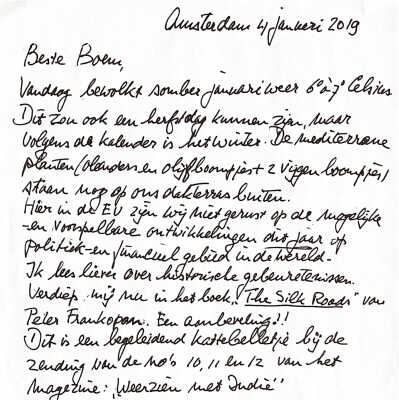 Amsterdam 4 januari 2019
Beste Boem,
Vandaag bewolkt somber januariweer 6° à 7° Celsius
Dit zou ook een herfstdag kunnen zijn, maar
volgens de kalender is het winter. De mediterrane
planten (oleanders en olijfboompjes + 2 vijgen boompjes)
staan nog op ons dakterras buiten.
Hier in de EU zijn wij niet gerust op de mogelijke
-en voorspelbare ontwikkelingen dit jaar op
politiek-en financieel gebied in de wereld.
Ik lees liever over historische gebeurtenissen.
Verdiep mij nu in het boek "The Silk Roads" van
Peter Frankopan. Een aanbeveling!!
Dit is een begeleidend kattebelletje bij de
zending van de no's 10, 11 en 12 van het
magazine: "Weerzien met Indië"